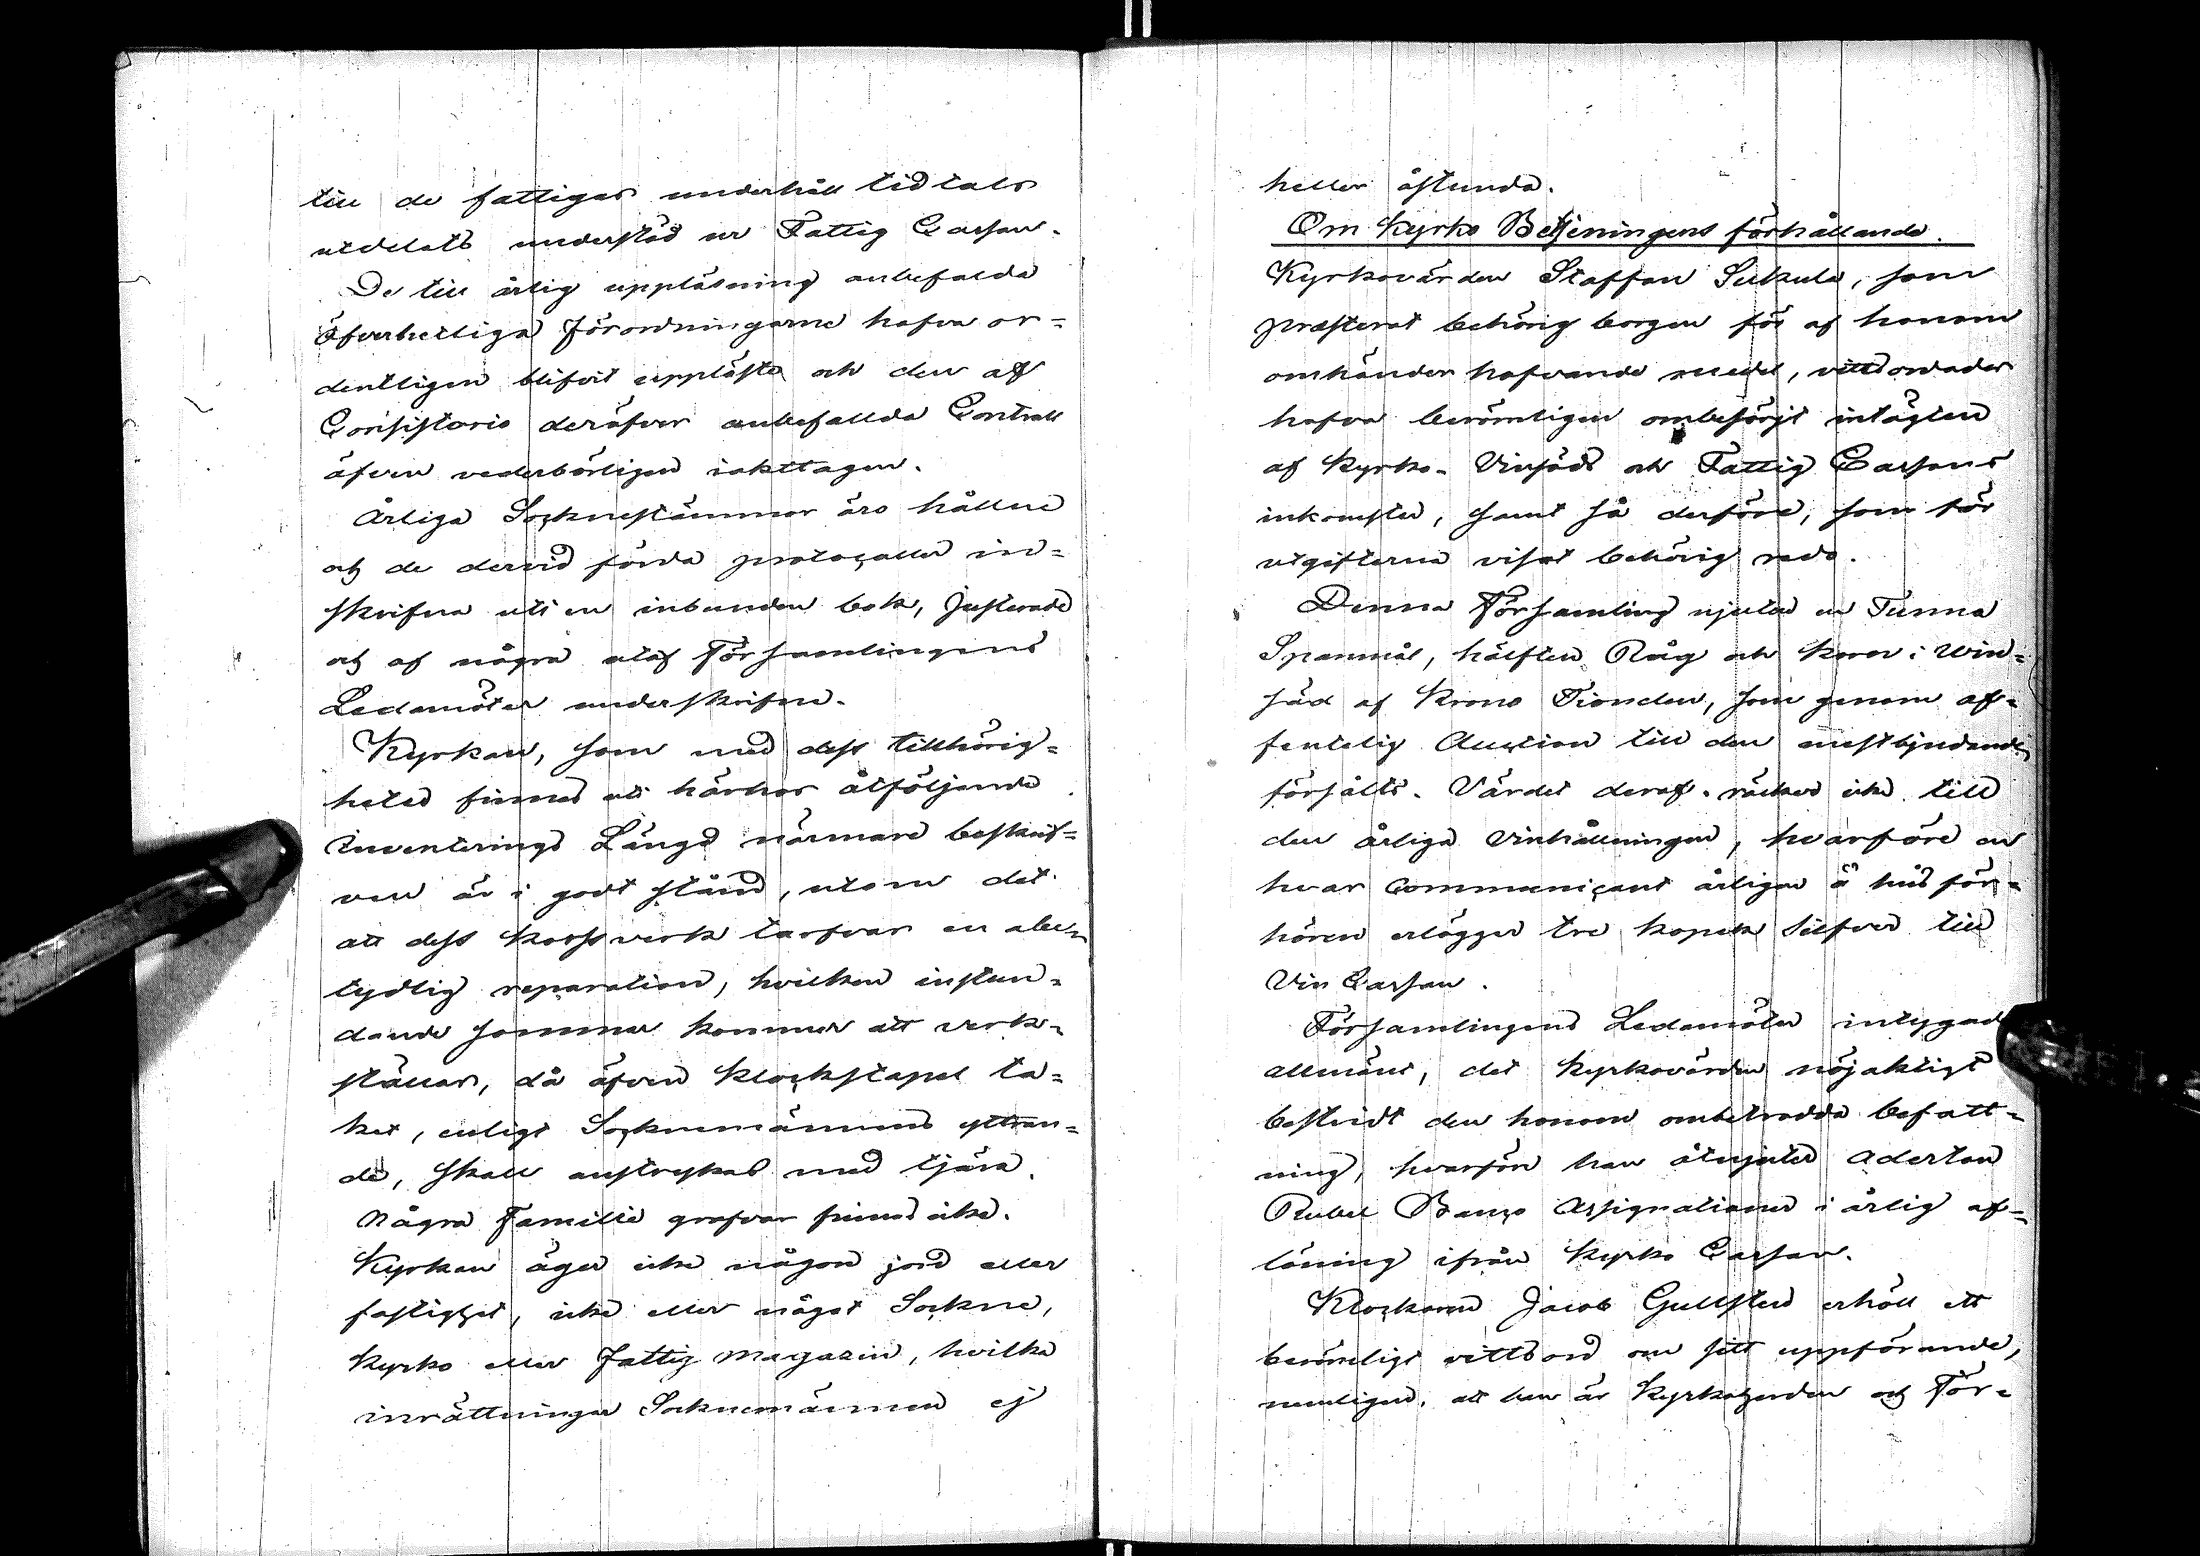 till de fattigas underhåll tid tals
utdelats understöd ur Fattig Cassan.
De till årlig uppläsning anbefalda
Öfverhetliga Förordningarne hafva or=
dentligen blifvit uppläste och den af
Consistorio deröfver anbefallda Controll
äfven vederbörligen iakttagen.
Årliga Socknestämmor äro hållne
och de dervid förda protocoller in=
skrifna uti en inbunden bok, justerade
och af några utaf Församlingens
Ledamöter underskrifne.
Kyrkan, som med dess tillhörig=
heter finnes uti härhos åtföljande
Inventerings Längd närmare beskrif=
ven är i godt stånd, utom det
att dess korsverk tarfvar en obe=
tydlig reparation, hvilken instun=
dande sommar kommer att verk=
ställas, då äfven Klockstapel ta=
ket, enligt Socknemännens yttran=
de, skall anstrykas med tjära.
Några Familie grafvar finnes icke.
Kyrkan äger icke någon jord eller
fastighet, icke eller något Sockne,
Kyrko eller Fattig Magazin, hvilka
inrättningar Socknemännen ej
heller åstunda.
Om Kyrko Betjeningens förhållande.
Kyrkovärden Staffan Sukula, som
præsterat behörig borgen för af honom
omhänder hafvande medel, vittsordades
hafva berömligen ombesörjt intägten
af Kyrko- Vinsäds och Fattig Cassans
inkomster, samt så derföre, som för
utgifterna visat behörig redo.
Denna Församling njuter en Tunna
Spanmål, hälften Råg och Korn i Win=
säd af Krono Tionden, som genom of=
fentelig Auction till den mestbjudande
försålts. Värdet deraf räcker icke till
den årliga Vinhållningen, hvarföre en
hvar Communicant årligen å husför=
hören erlägger tre kopek Silfver till
Vin Cassan.
Församlingens Ledamöter intygade
allmänt, det Kyrkovärden nöjaktigt
bestridt den honom ombetrodda befatt=
ning, hvarföre han åtnjuter Aderton
Rubel Banco Assignationer i årlig af=
löning ifrån Kyrko Cassan.
Klockaren Jacob Gullsten erhöll ett
berömligt vittsord om sitt uppförande,
nemligen, att han är Kyrkoherden och För=